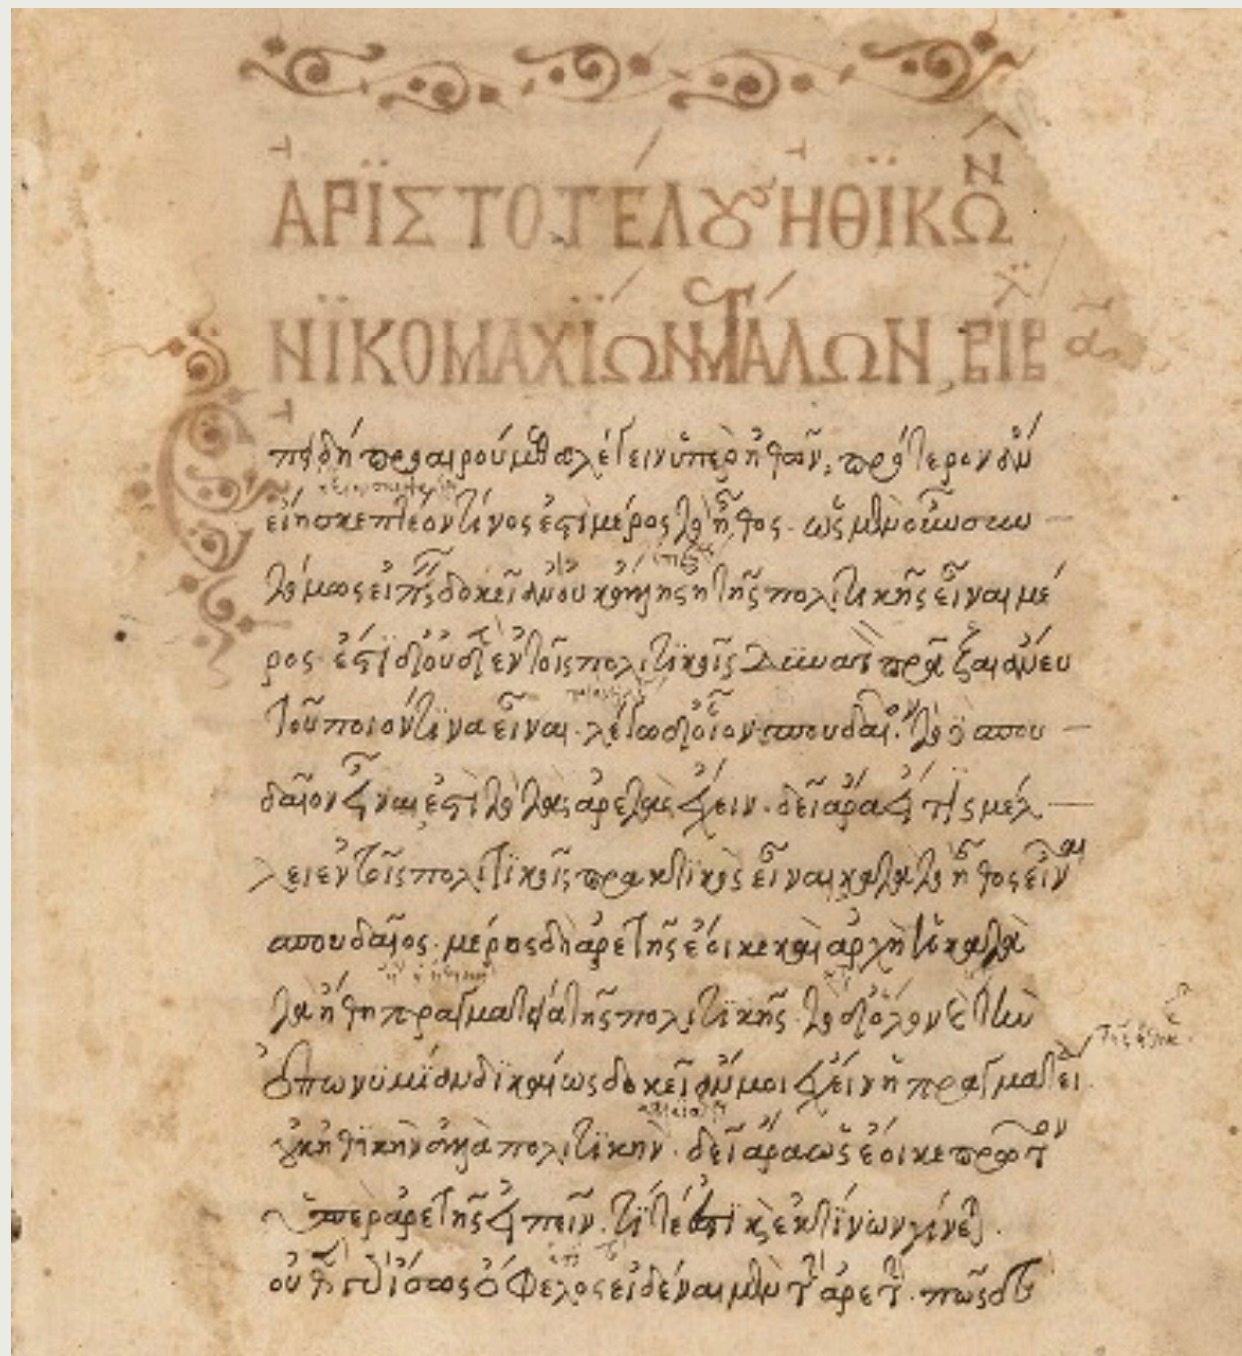 ἈΡΪΣΤΟΤΈΛΟΥΣ ἨΘΪΚΩ͂Ν
ΝΪΚΟΜΑΧΪΏΝ ΜΕΓΆΛΩΝ, ΒΙΒ α
πειδή προαιρούμεθα λέγειν ὑπὲρ ἠθῶν, πρότερον ἂν
εἴη σκεπτέον τίνος ἐστὶ μέρος τὸ ἦθος. ὡς μὲν οὖν συν
τόμως εἰπεῖν δοκεῖ ἂν οὐκ ἄλλης ἢ τῆς πολιτικῆς εἶναι μέ
ρος. ἔστι δ' οὐδὲν ἐν τοῖς πολιτικοῖς δυνατὸν πρᾶξαι ἄνευ
τοῦ ποιόν τινα εἶναι. λέγω δ' οἷον σπουδαῖον. τὸ δὲ σπου
δαῖον εἶναι ἐστὶ τὸ τὰς ἀρετὰς ἔχειν. δεῖ ἄρα εἴ τις μέλ
λει ἐν τοῖς πολιτικοῖς πρακτικὸς εἶναι κατὰ τὸ ἦθος εἶναι
σπουδαῖος. μέρος δὴ ἀρετῆς ἔοικε καὶ ἀρχὴ τις κατὰ
τὰ ἤθη πραγματεία τῆς πολιτικῆς. τὸ δ' ὅλον καὶ τὴν
ἐπωνυμίαν δικαίως δοκεῖ ἄν μοι ἔχειν ἡ πραγματεί
οὐκ ἠθικὴν ἀλλὰ πολιτικὴν. δεῖ ἄρα ὡς ἔοικε πρῶτον
ὑπὲρ ἀρετῆς εἰπεῖν. τί τέ ἐστι καὶ ἐκ τίνων γίνεται.
οὐδὲν γὰρ ἴσως ὄφελος εἰδέναι μὲν τὴν ἀρετὴν. πῶς δὲ